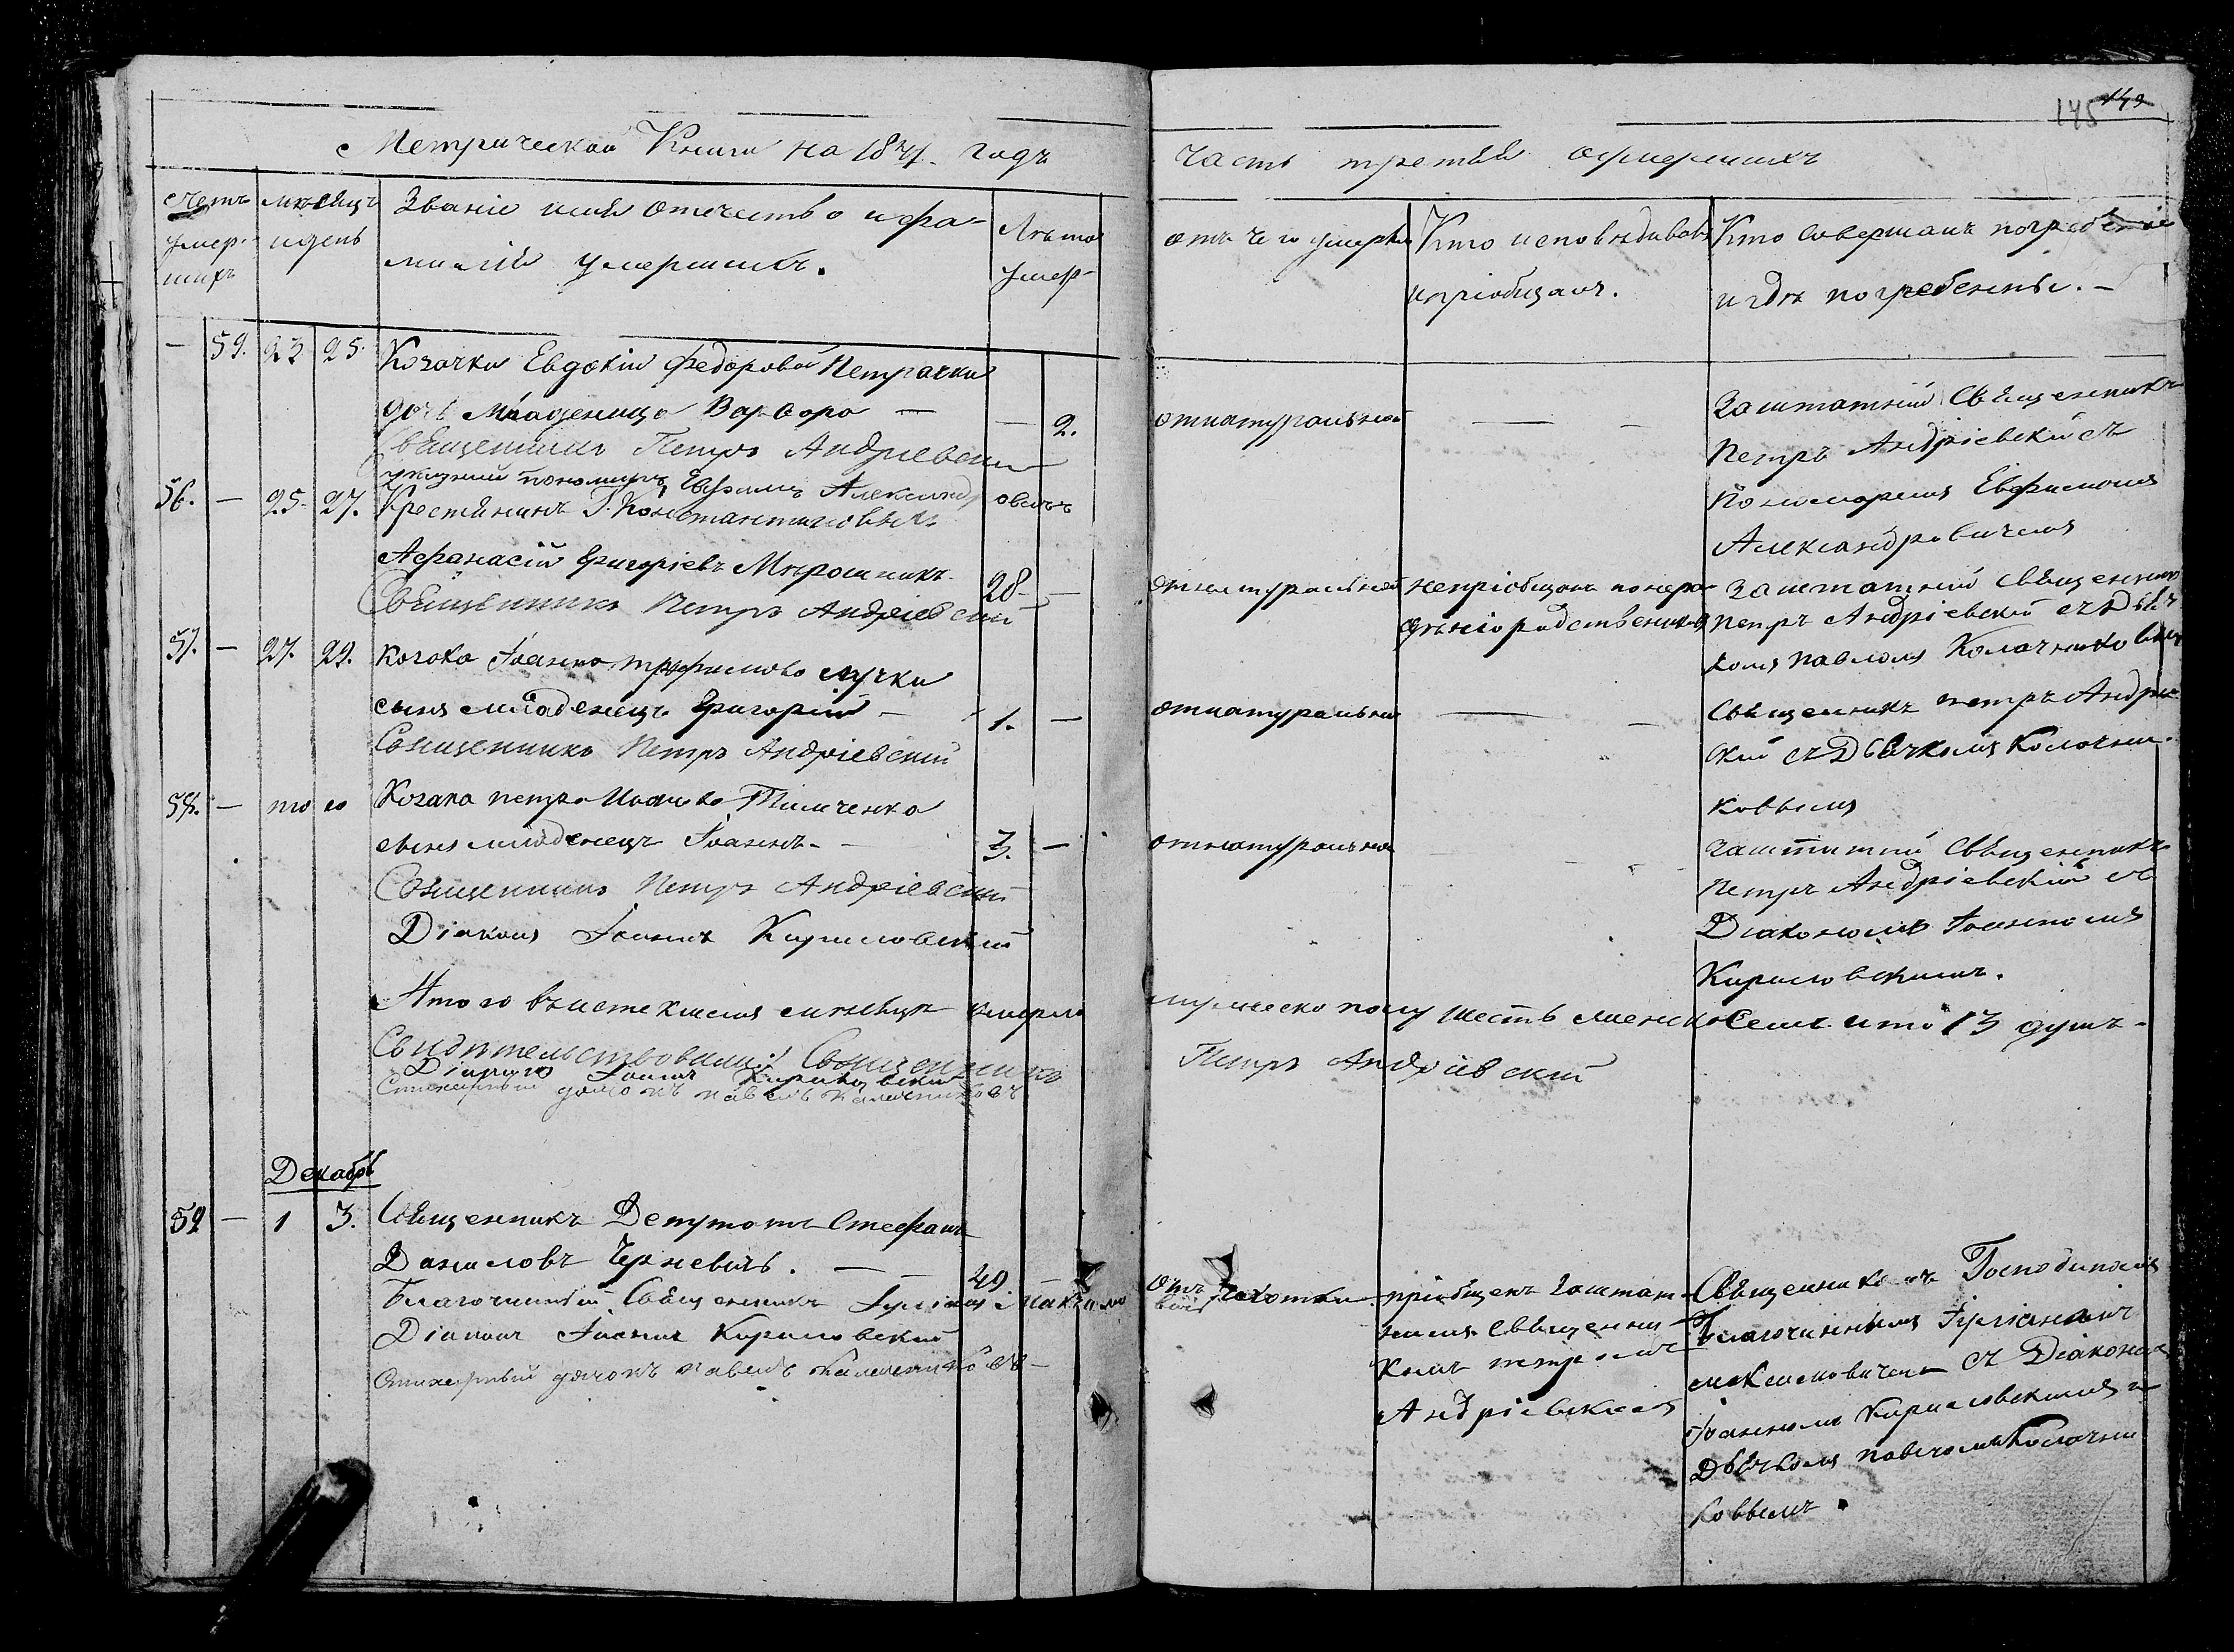 145 149
Метрической Книги на 1841. годъ
часть третїя о умершихъ
Счетъ умер-шихъ
мѣсяцъ и день
Званіе имя отечество и фа-
милїя умершихъ.
Лѣта умер-
отъ чего умерли
Кто исповѣдывалъ
и пріобщалъ.
Кто совершалъ погребеніе
и гдѣ погребенны. -
— 59. 23 25.
Козачки Евдокїи Федоровой Петрачки
дочь младеница Варвара — — 2.
Священникъ Петръ Андріевскій
указный пономарь Евфимъ Александровичъ
отнатуральной — -
Заштатній Священникъ
Петръ Андріевскій съ
Пономаремъ Евфимомъ
Александровичемъ
56. — 25. 27.
Крестянинъ Г. Константиновыхъ
Афанасій Григоріевъ Мѣрошникъ. 28- —
Священникъ Петръ Андріевскій
отнатуральной
непріобщонъ понера-
дѣнію родственниковъ
Заштатній Священникъ
Петръ Андріевскій съ Дьяч
комъ Павломъ Колачниковымъ
57. — 27. 29.
Козака Іоанна Трофимова Лучки
сынъ младенецъ Григорій — 1. —
Священникъ Петръ Андріевскій
отнатуральной — -
Священникъ Петръ Андріев
скій съ Дьячкомъ Колачни-
ковымъ
58. — того
Козака Петра Иванова Тимченка
сынъ младенецъ Іоаннъ. - 3. —
Священникъ Петръ Андріевскій
Діаконъ Іоаннъ Кириловскій
отнатуральной
Заштатній Священникъ
Петръ Андріевскій съ
Діакономъ Іоанномъ
Кириловскимъ.
Итого въ истекшемъ мѣсяцѣ умерло мужеска полу шесть женска Семь ито 13 душъ -
Свидѣтельствовали: Священникъ Петръ Андріевскій
Діаконъ Іоаннъ Кириловскій
Стихарный дячокъ Павелъ Калачниковъ
Декабрь
59 — 1 3.
Священникъ Депутатъ Стефанъ
Даниловъ Черневичъ. — — 49
Благочинный Священникъ
Діаконъ Іоаннъ Кириловскій
Стихарный дячокъ Павелъ Калачниковъ —
Отъ чахотки
пріобщенъ Заштат-
нимъ Священни-
комъ Петромъ
Андріевскимъ
Священникомъ Господиномъ
Благочиннымъ Іуліаномъ
Максимовичемъ съ Діакономъ
Іоанномъ Кириловскимъ и
Дьячкомъ Павломъ Колачни
ковымъ.